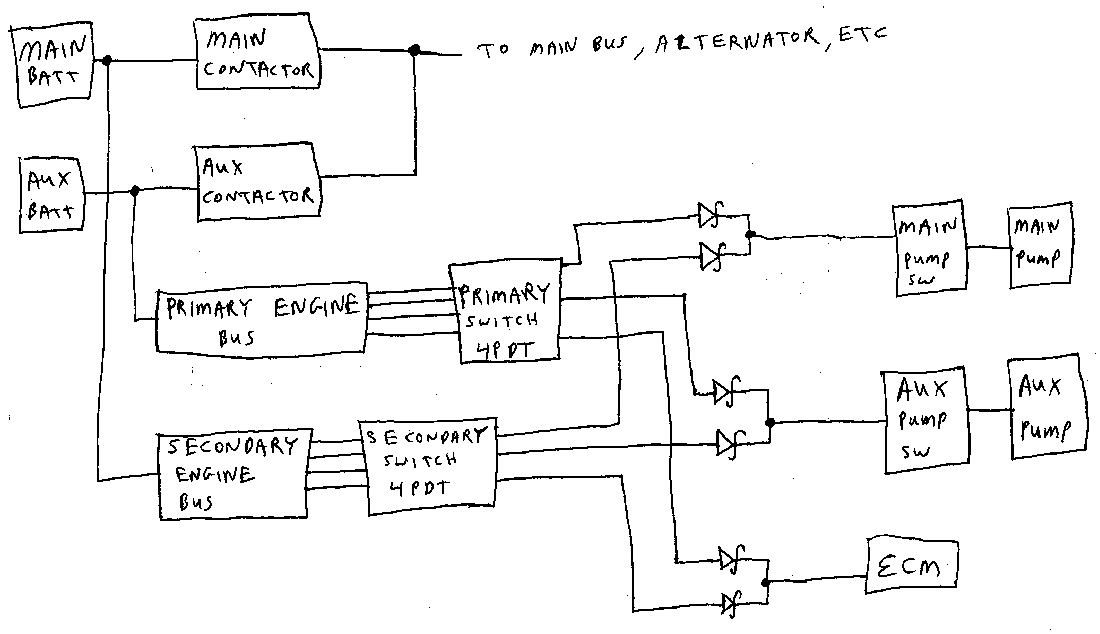 MAIN
BATT
MAIN
CONTACTOR
TO MAIN BUS, ALTERNATOR, ETC
AUX
BATT
AUX
CONTACTOR
PRIMARY ENGINE
BUS
PRIMARY
SWITCH
4PDT
MAIN
PUMP
SW
MAIN
PUMP
SECONDARY
ENGINE
BUS
SECONDARY
SWITCH
4PDT
AUX
PUMP
SW
AUX
PUMP
ECM